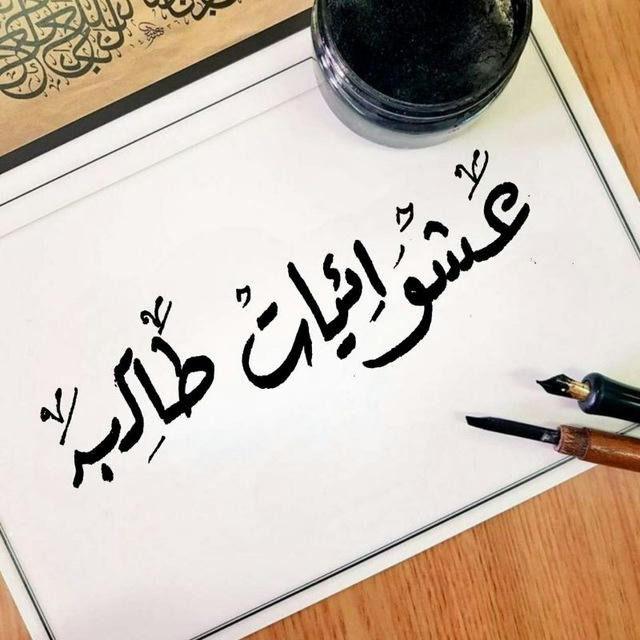 عشوائيات طالبة